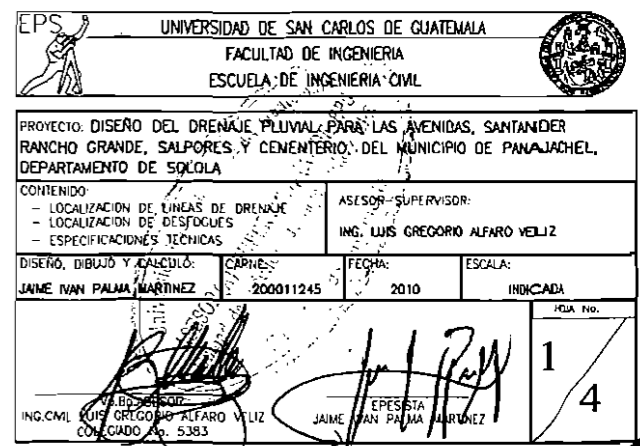 EPS
UNIVERSIDAD DE SAN CARLOS DE GUATEMALA
FACULTAD DE INGENIERIA
ESCUELA DE INGENIERIA CIVIL
PROYECTO: DISEÑO DEL DRENAJE PLUVIAL PARA LAS AVENIDAS, SANTANDER
RANCHO GRANDE, SALPORES Y CEMENTERIO, DEL MUNICIPIO DE PANAJACHEL,
DEPARTAMENTO DE SOLOLA
CONTENIDO:
- LOCALIZACION DE LINEAS DE DRENAJE
- LOCALIZACION DE DESFOGUES
- ESPECIFICACIONES TECNICAS
ASESOR-SUPERVISOR:
ING. LUIS GREGORIO ALFARO VELIZ
DISEÑO, DIBUJO Y CALCULO:
JAIME IVAN PALMA MARTINEZ
CARNE:
200011245
FECHA:
2010
ESCALA:
INDICADA
HOJA No.
1
4
Vo.Bo. ASESOR
ING.CIVIL LUIS GREGORIO ALFARO VELIZ
COLEGIADO No. 5383
EPESISTA
JAIME IVAN PALMA MARTINEZ